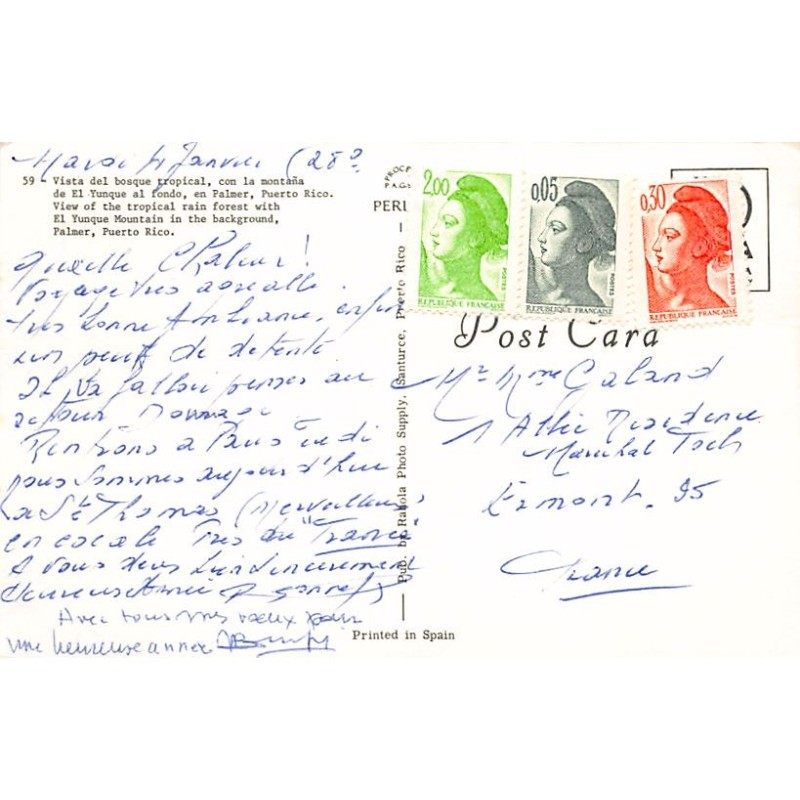 Mardi 4 Janvier (28°
59 - Vista del bosque tropical, con la montaña
de El Yunque al fondo, en Palmer, Puerto Rico.
View of the tropical rain forest with
El Yunque Mountain in the background,
Palmer, Puerto Rico.
quelle Chaleur!
Voyage très agréable
très bonne Ambiance, enfin
un peu de détente
Il va falloir penser au
retour Dommage
Rentrons à Paris
nous sommes aujourd'hui
a St Thomas (Merveilleux
en escale "France"
A vous deux bien sincèrement
Heureuse Année
Avec tous mes vœux pour
une heureuse année
Pub. by Rahola Photo Supply, Santurce, Puerto Rico
2.00
POSTES
REPUBLIQUE FRANÇAISE
0,05
POSTES
REPUBLIQUE FRANÇAISE
0,30
POSTES
REPUBLIQUE FRANÇAISE
Post Card
Mr Mme Caland
1 Allée Résidence
Maréchal Foch
Ermont. 95
France
Printed in Spain